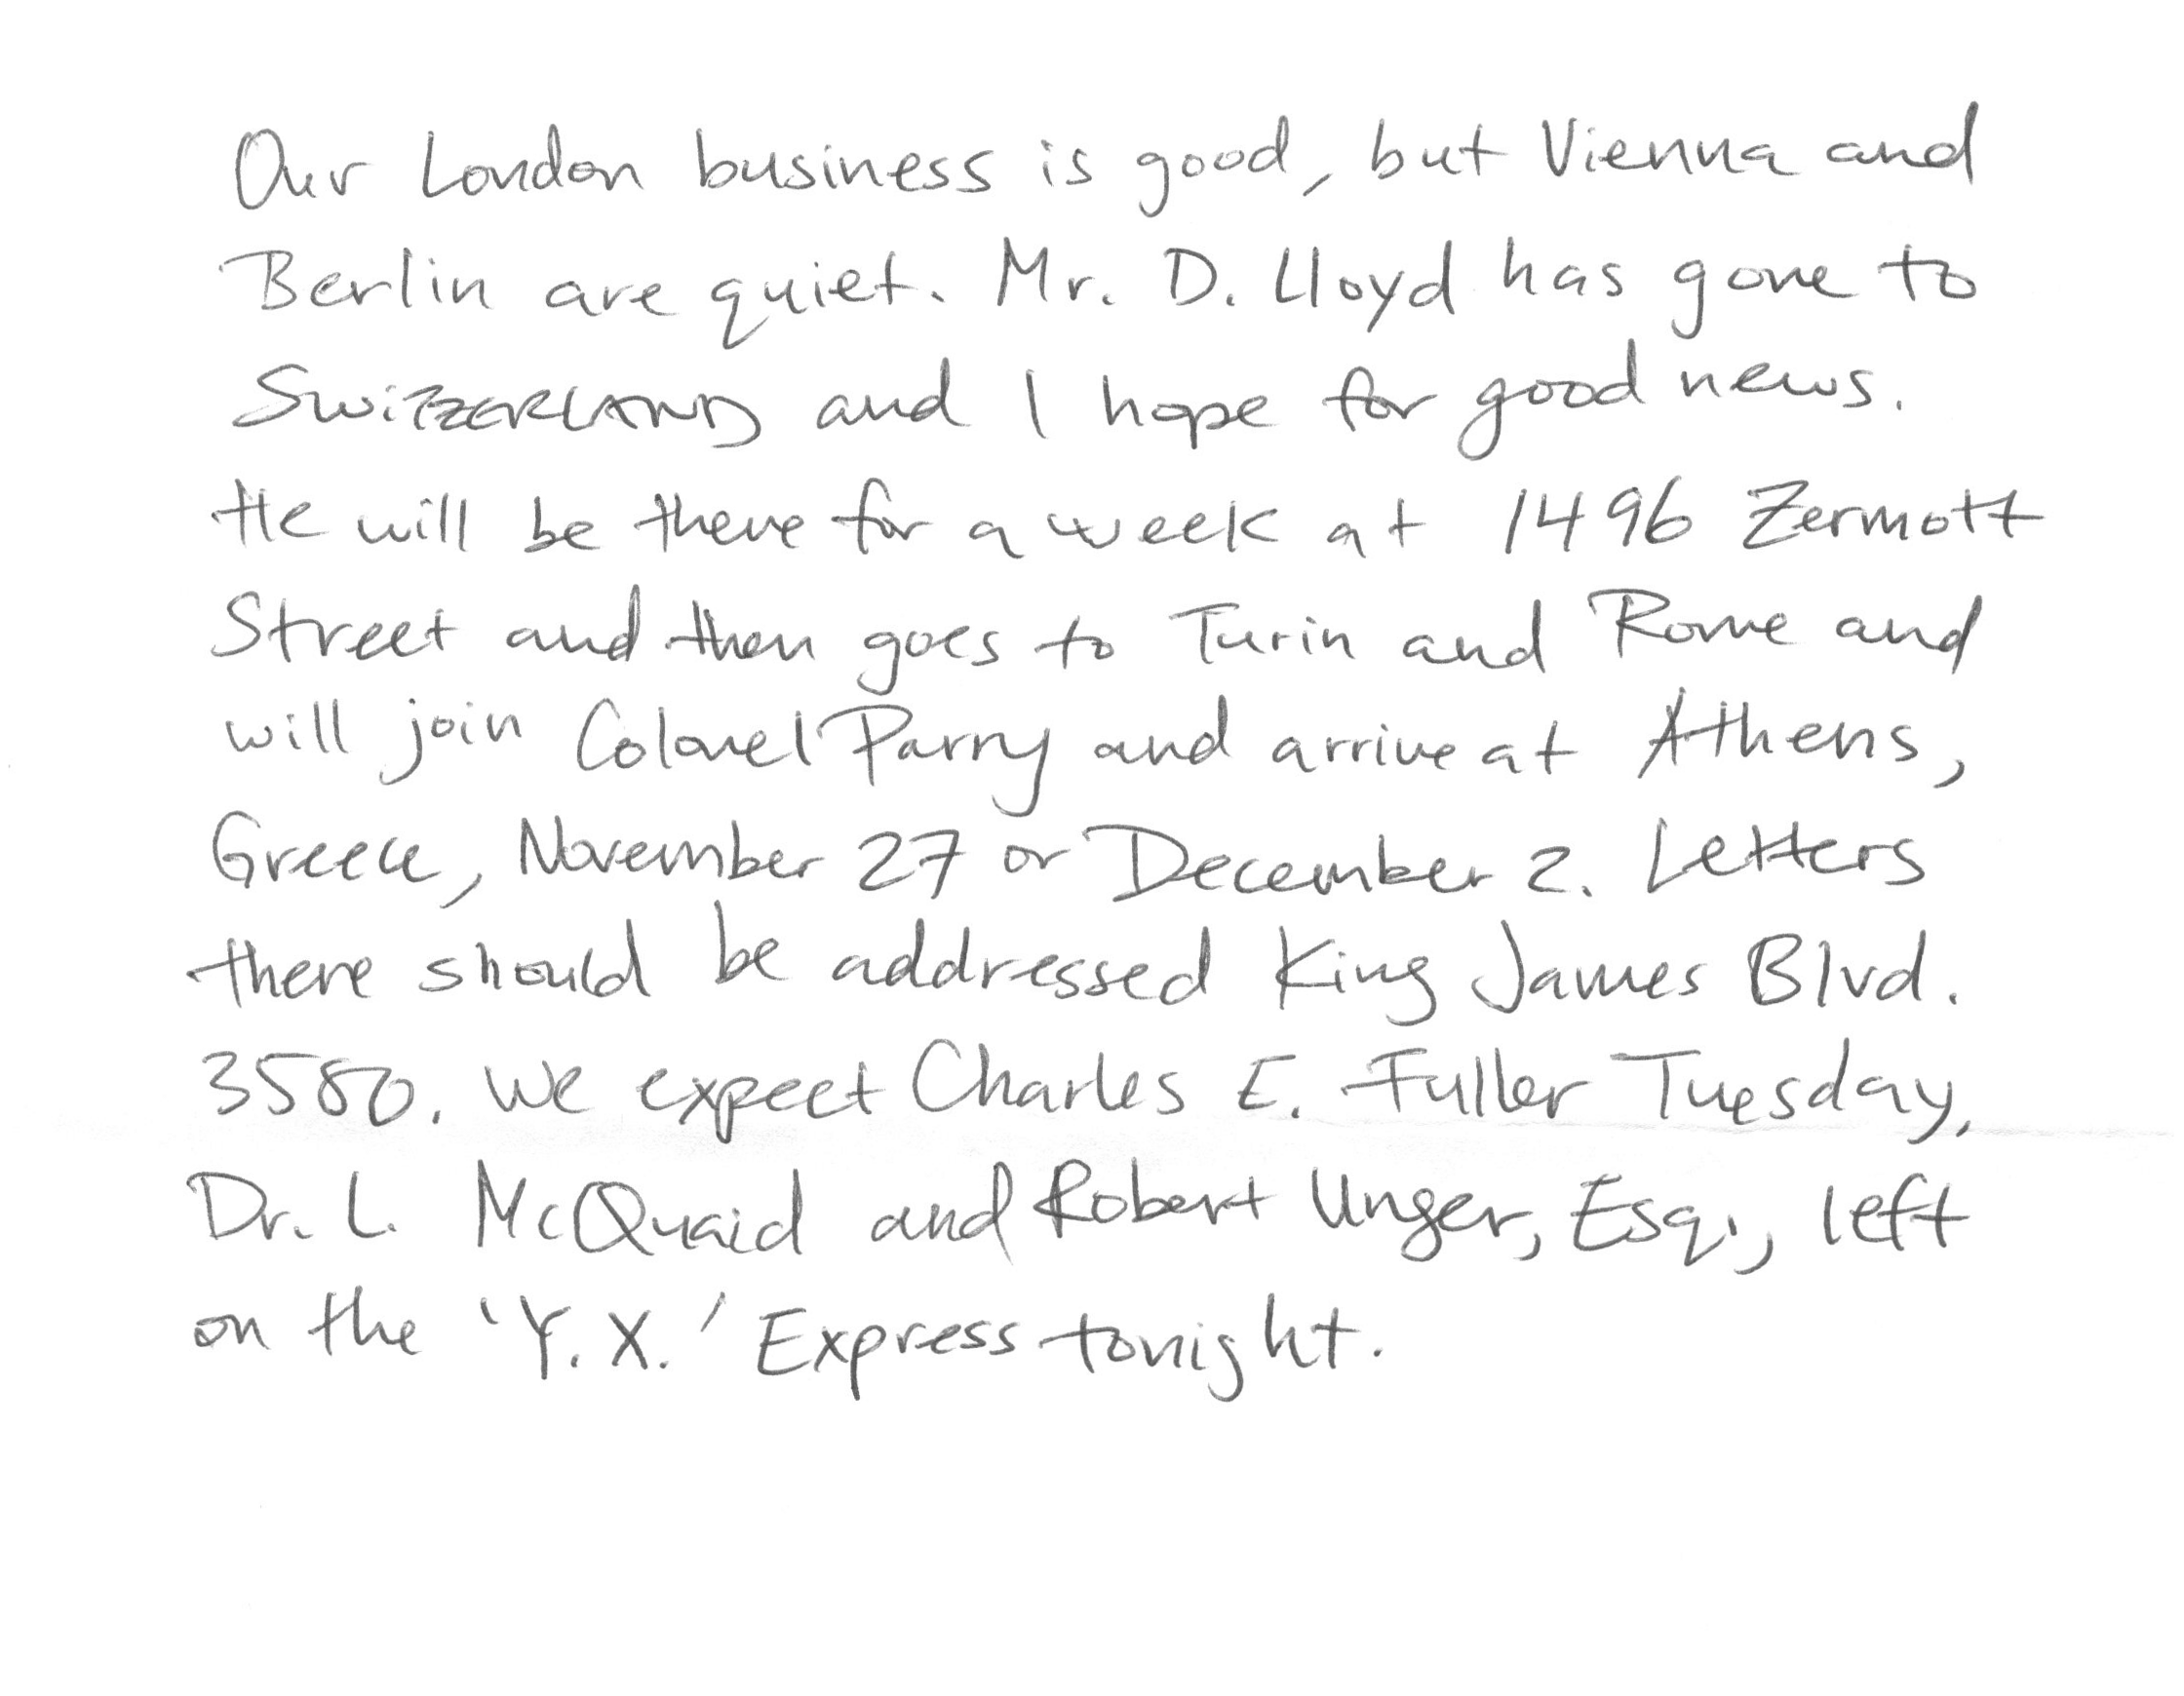 Our London business is good, but Vienna and
Berlin are quiet. Mr. D. Lloyd has gone to
SwiTZERLAND and I hope for good news.
He will be there for a week at 1496 Zermott
Street and then goes to Turin and Rome and
will join Colonel Parry and arrive at Athens,
Greece, November 27 or December 2. Letters
there should be addressed King James Blvd.
3580. We expect Charles E. Fuller Tuesday.
Dr. L. McQuaid and Robert Unger, Esq., left
on the 'Y. X.' Express tonight.